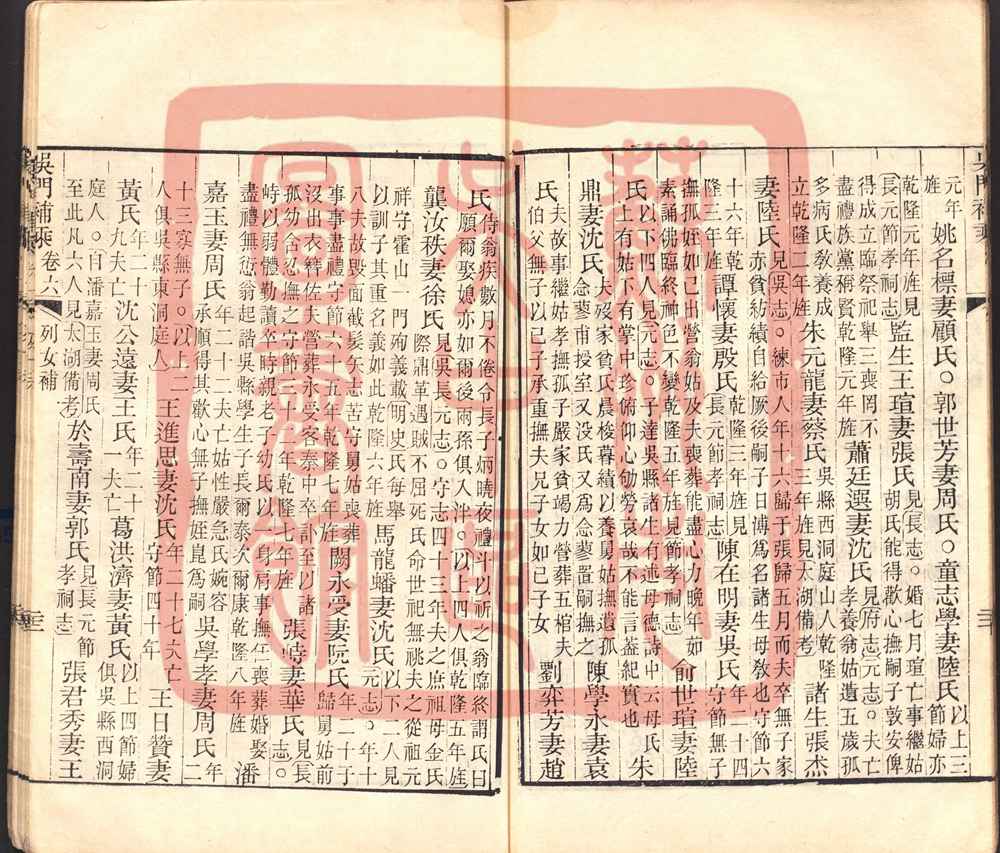 元年旌 姚名標妻顧氏○郭世芳妻周氏○童志學妻陸氏 以上三節婦亦
乾隆元年旌見長元節孝祠志 監生王瑄妻張氏 見長志○婚七月瑄亡事繼姑胡氏能得歡心撫嗣子敦安俾
得成立臨祭祀舉三喪罔不盡禮族黨稱賢乾隆元年旌 蕭廷選妻沈氏 見府志元志○夫亡孝養翁姑遺五歲孤
多病氏敎養成立乾隆二年旌 朱元龍妻蔡氏 吳縣西洞庭山人乾隆三年旌見太湖備考 諸生張杰
妻陸氏 見吳志○練市人年十六歸于張歸五月而夫卒無子家赤貧紡績自給厥後嗣子日溥爲名諸生母敎也守節六
十六年乾隆三年旌 譚懷妻殷氏 乾隆三年旌見長元節孝祠志 陳在明妻吳氏 年二十四守節無子
撫孤姪如已出營翁姑及夫喪葬能盡心力晚年茹素誦佛臨終神色不變乾隆五年旌見節孝祠志 俞世瑄妻陸
氏 以下四人見元志○子達吳縣諸生有述母德詩中云母氏上有姑下有掌中珍俯仰心劬勞哀哉不能言蓋紀實也 朱
鼎妻沈氏 夫歿家貧氏晨梭暮績以養舅姑撫遺孤念蓼甫授室又沒氏又爲念蓼置嗣撫之 陳學永妻袁
氏 夫故事繼姑孝撫孤子嚴家貧竭力營葬五棺夫伯父無子以已子承重撫夫兄子女如已子女 劉弈芳妻趙
氏 侍翁疾數月不倦令長子炳曉夜禮斗以祈之翁臨終謂氏曰願爾娶媳亦如爾後兩孫俱入泮○以上四人俱乾隆五年旌
龔汝秩妻徐氏 見吳長元志○守志四十三年夫之庶祖母金氏際鼎革遇賊不屈死氏命世祀無祧夫之從祖元
祥守霍山一門殉義載明史氏每舉以訓子其重名義如此乾隆六年旌 馬龍蟠妻沈氏 以下二人見元志○年十
八夫故毀面截髮矢志苦守舅姑喪葬事事盡禮守節六十一年乾隆七年旌 闕永受妻阮氏 年二十于歸舅姑前
沒出衣簪佐夫營葬永受客泰中卒訃至以諸孤幼含忍撫之守節三十二年乾隆七年旌 張時妻華氏 見長志○
時以弱體勤讀卒時親老子幼氏以一身肩事撫任喪葬婚娶盡禮無愆翁起諧吳縣學生子長爾泰次爾康乾隆八年旌 潘
嘉玉妻周氏 年二十二夫亡姑性嚴急氏婉容承順得其歡心無子撫姪崑爲嗣 吳學孝妻周氏 年二
十三寡無子○以上二人俱吳縣東洞庭人 王進思妻沈氏 年二十七夫亡守節四十年 王日贊妻
黃氏 年二十九夫亡 沈公遠妻王氏 年二十一夫亡 葛洪濟妻黃氏 以上四節婦俱吳縣西洞
庭人○自潘嘉玉妻周氏至此凡六人見太湖備考 於壽南妻郭氏 見長元節孝祠志 張君秀妻王
吳門補乘 卷六 列女補